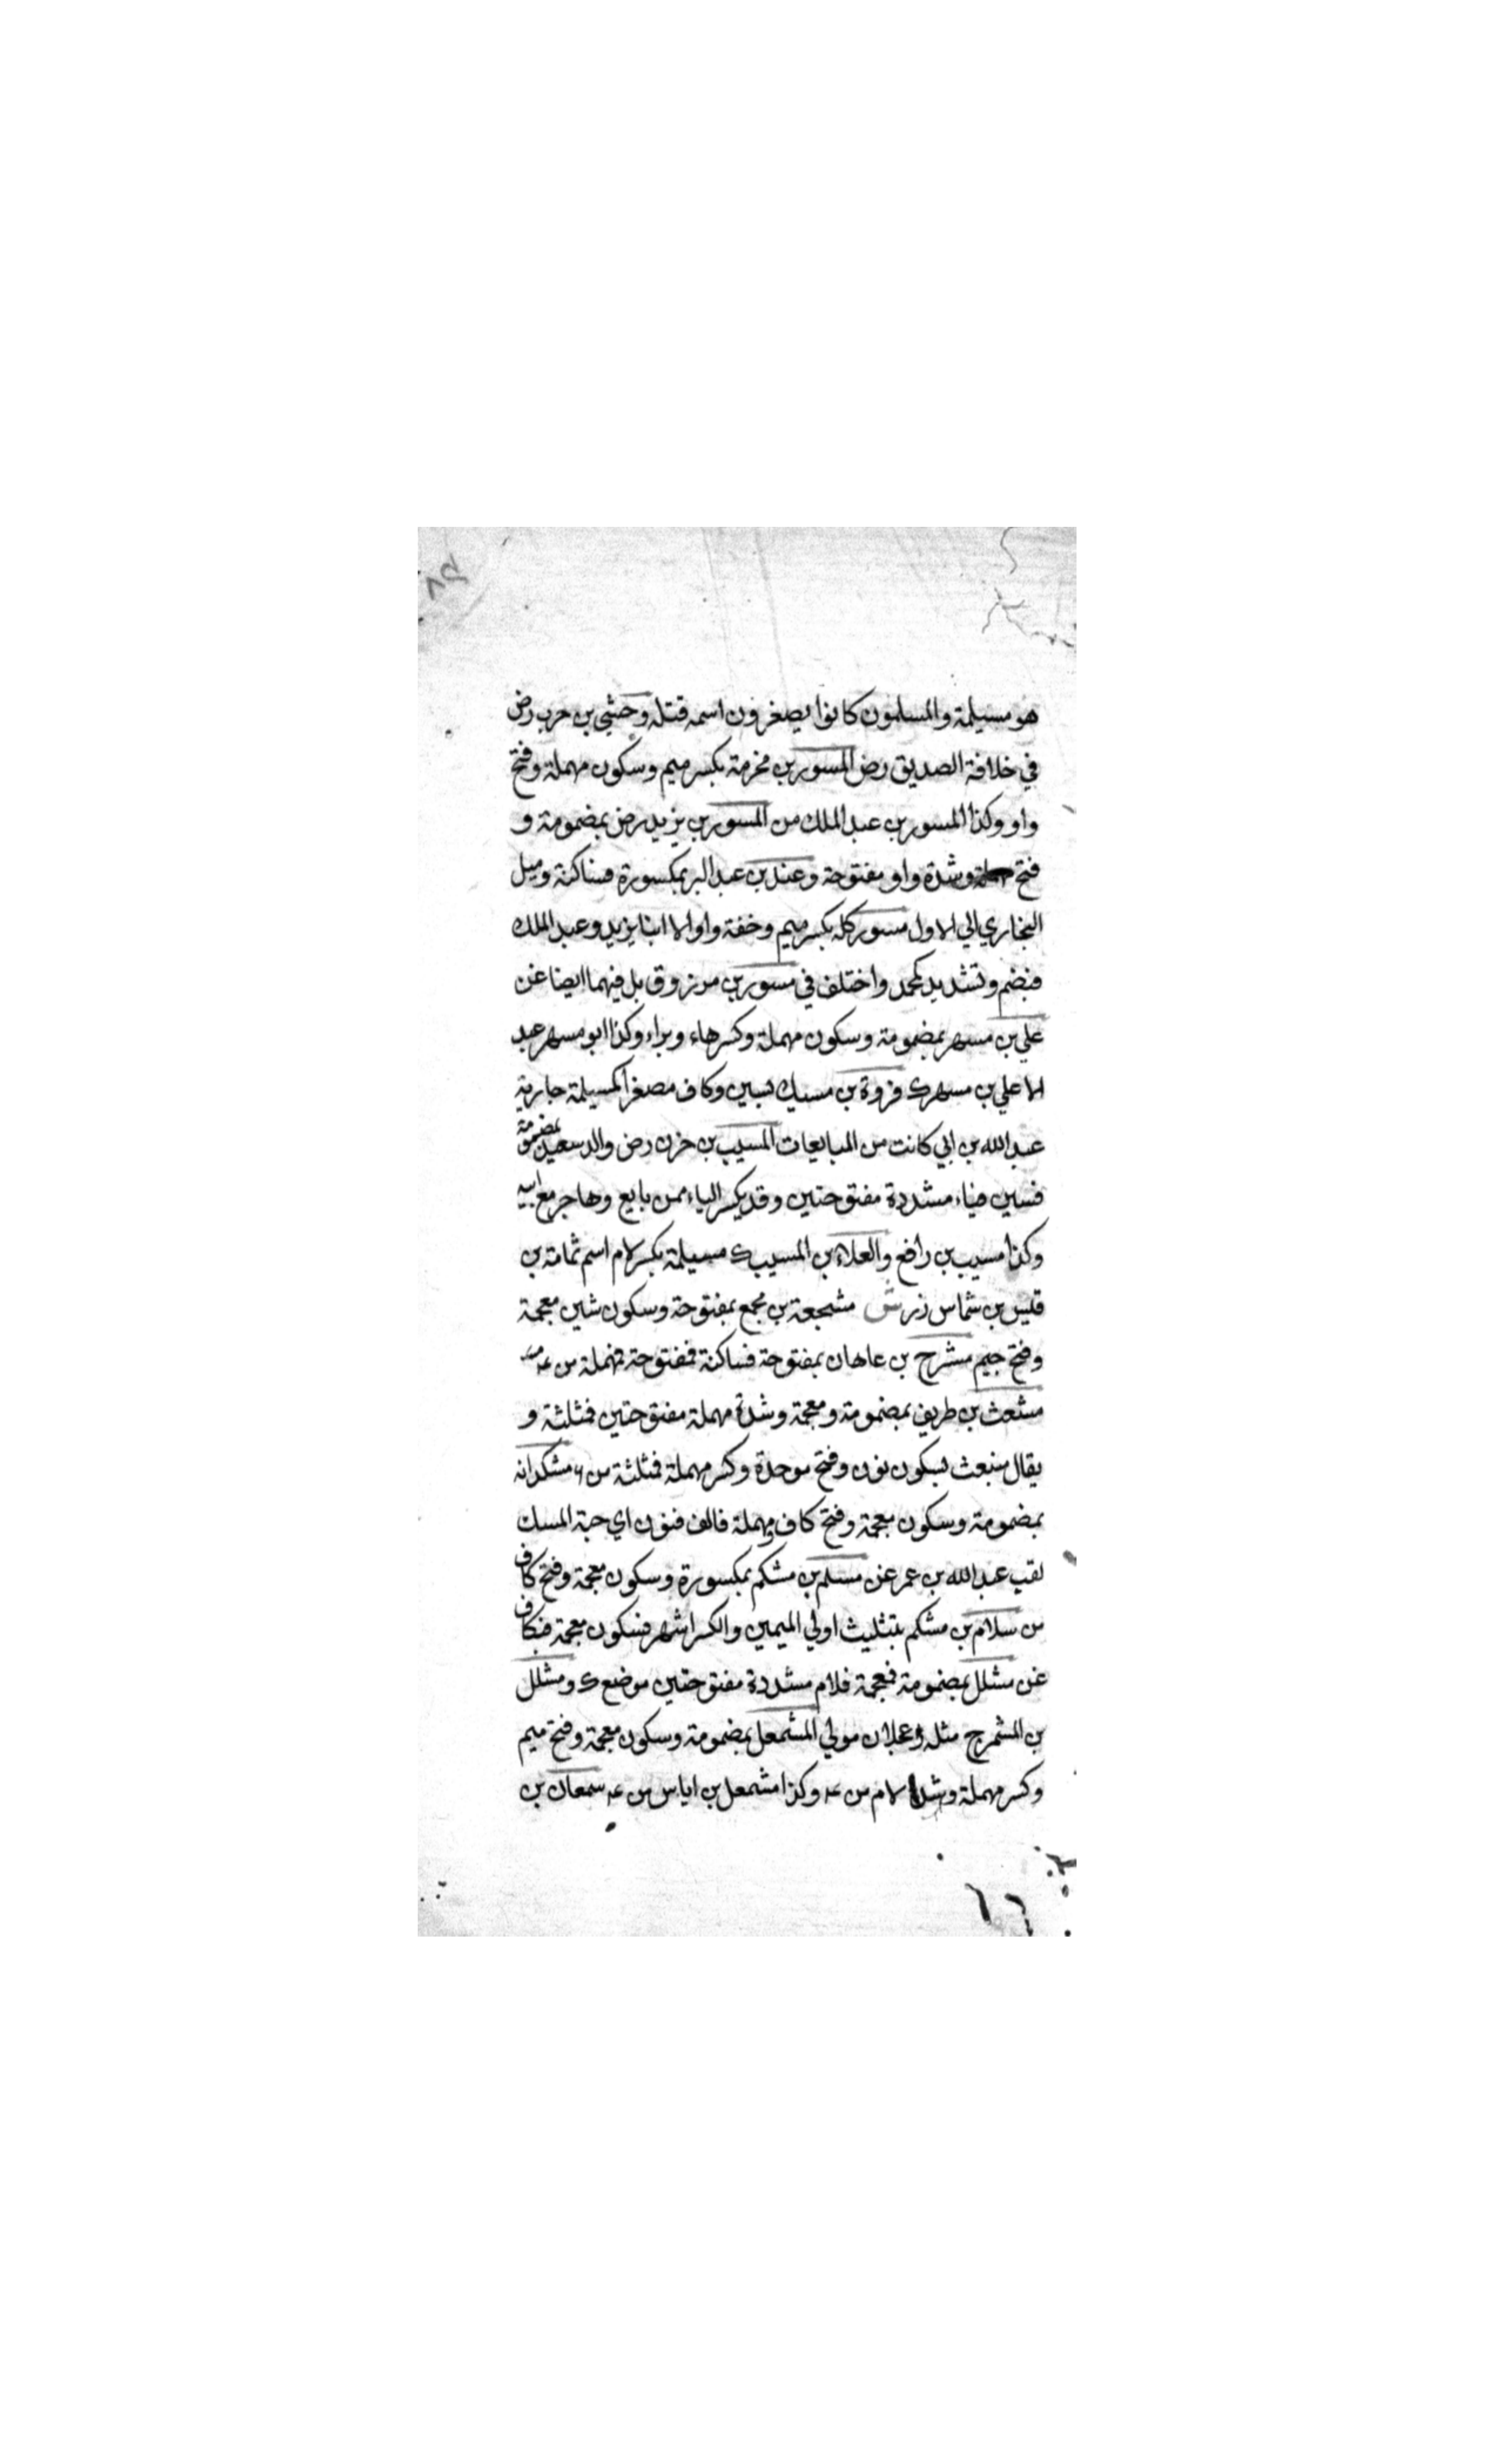 هو مسيلمة والمسلمون كانوا يصغرون اسمه قتله وحشي بن حرب رض
في خلافة الصديق رض المسور بن مخرمة بكسر ميم وسكون مهملة وفتح
واو وكذا المسور بن عبد الملك من المسور بن يزيد رض بمضمومة و
فتح وشدة واو مفتوحة وعند بن عبد البر بمكسورة فساكنة وميل
البخاري الي الاول مسور كله بكسر ميم وخفة واو الا ابنا يزيد وعبد الملك
فبضم وتشديد كمحمد واختلف في مسور بن مرزوق بل فيهما ايضا غن
علي بن مسهر بمضمومة وسكون مهملة وكسر هاء وبراء وكذا ابو مسهر عبد
الاعلي بن مسهرك فروة بن مسيك بسين وكاف مصغرا كمسيلمة جارية
عبد الله بن ابي كانت من المبايعات المسيب بن حزن رض والد سعيد بمضمومة
فسين فياء مشددة مفتوحتين وقد يكسر الياء ممن بايع وهاجر مع ابيه
وكذا مسيب بن رافع والعلاء بن المسيب ك مسيلمة بكسر لام اسم ثمامة بن
قيس بن شماس زر ش مشجعة بن مجمع بمفتوحة وسكون شين معجمة
وفتح جيم مشرح بن عاهان بمفتوحة فساكنة فمفتوحة فمهملة من عه
مشعث بن طريف بمضمومة ومعجمة وشدة مهملة مفتوحتين فمثلثة و
يقال منبعث بسكون نون وفتح موحدة وكسر مهملة فمثلثة من ۶ مشكدانه
بمضمومة وسكون معجمة وفتح كاف ومهملة فالف فنون اي حبة المسك
لقب عبد الله بن عمر غن مسلم بن مشكم بمكسورة وسكون معجمة وفتح كاف
من سلام بن مشكم بتثليث اولي الميمين والكسر اشهر فسكون معجمة فكاف
غن مشلل بمضمومة فمعجمة فلام مشددة مفتوحتين موضع ك ومشلل
بن المشمرج مثله وعجلان مولي المشمعل بمضمومة وسكون معجمة وفتح ميم
وكسر مهملة وشدة لام من عه وكذا مشمعل بن اياس من عه سمعان بن